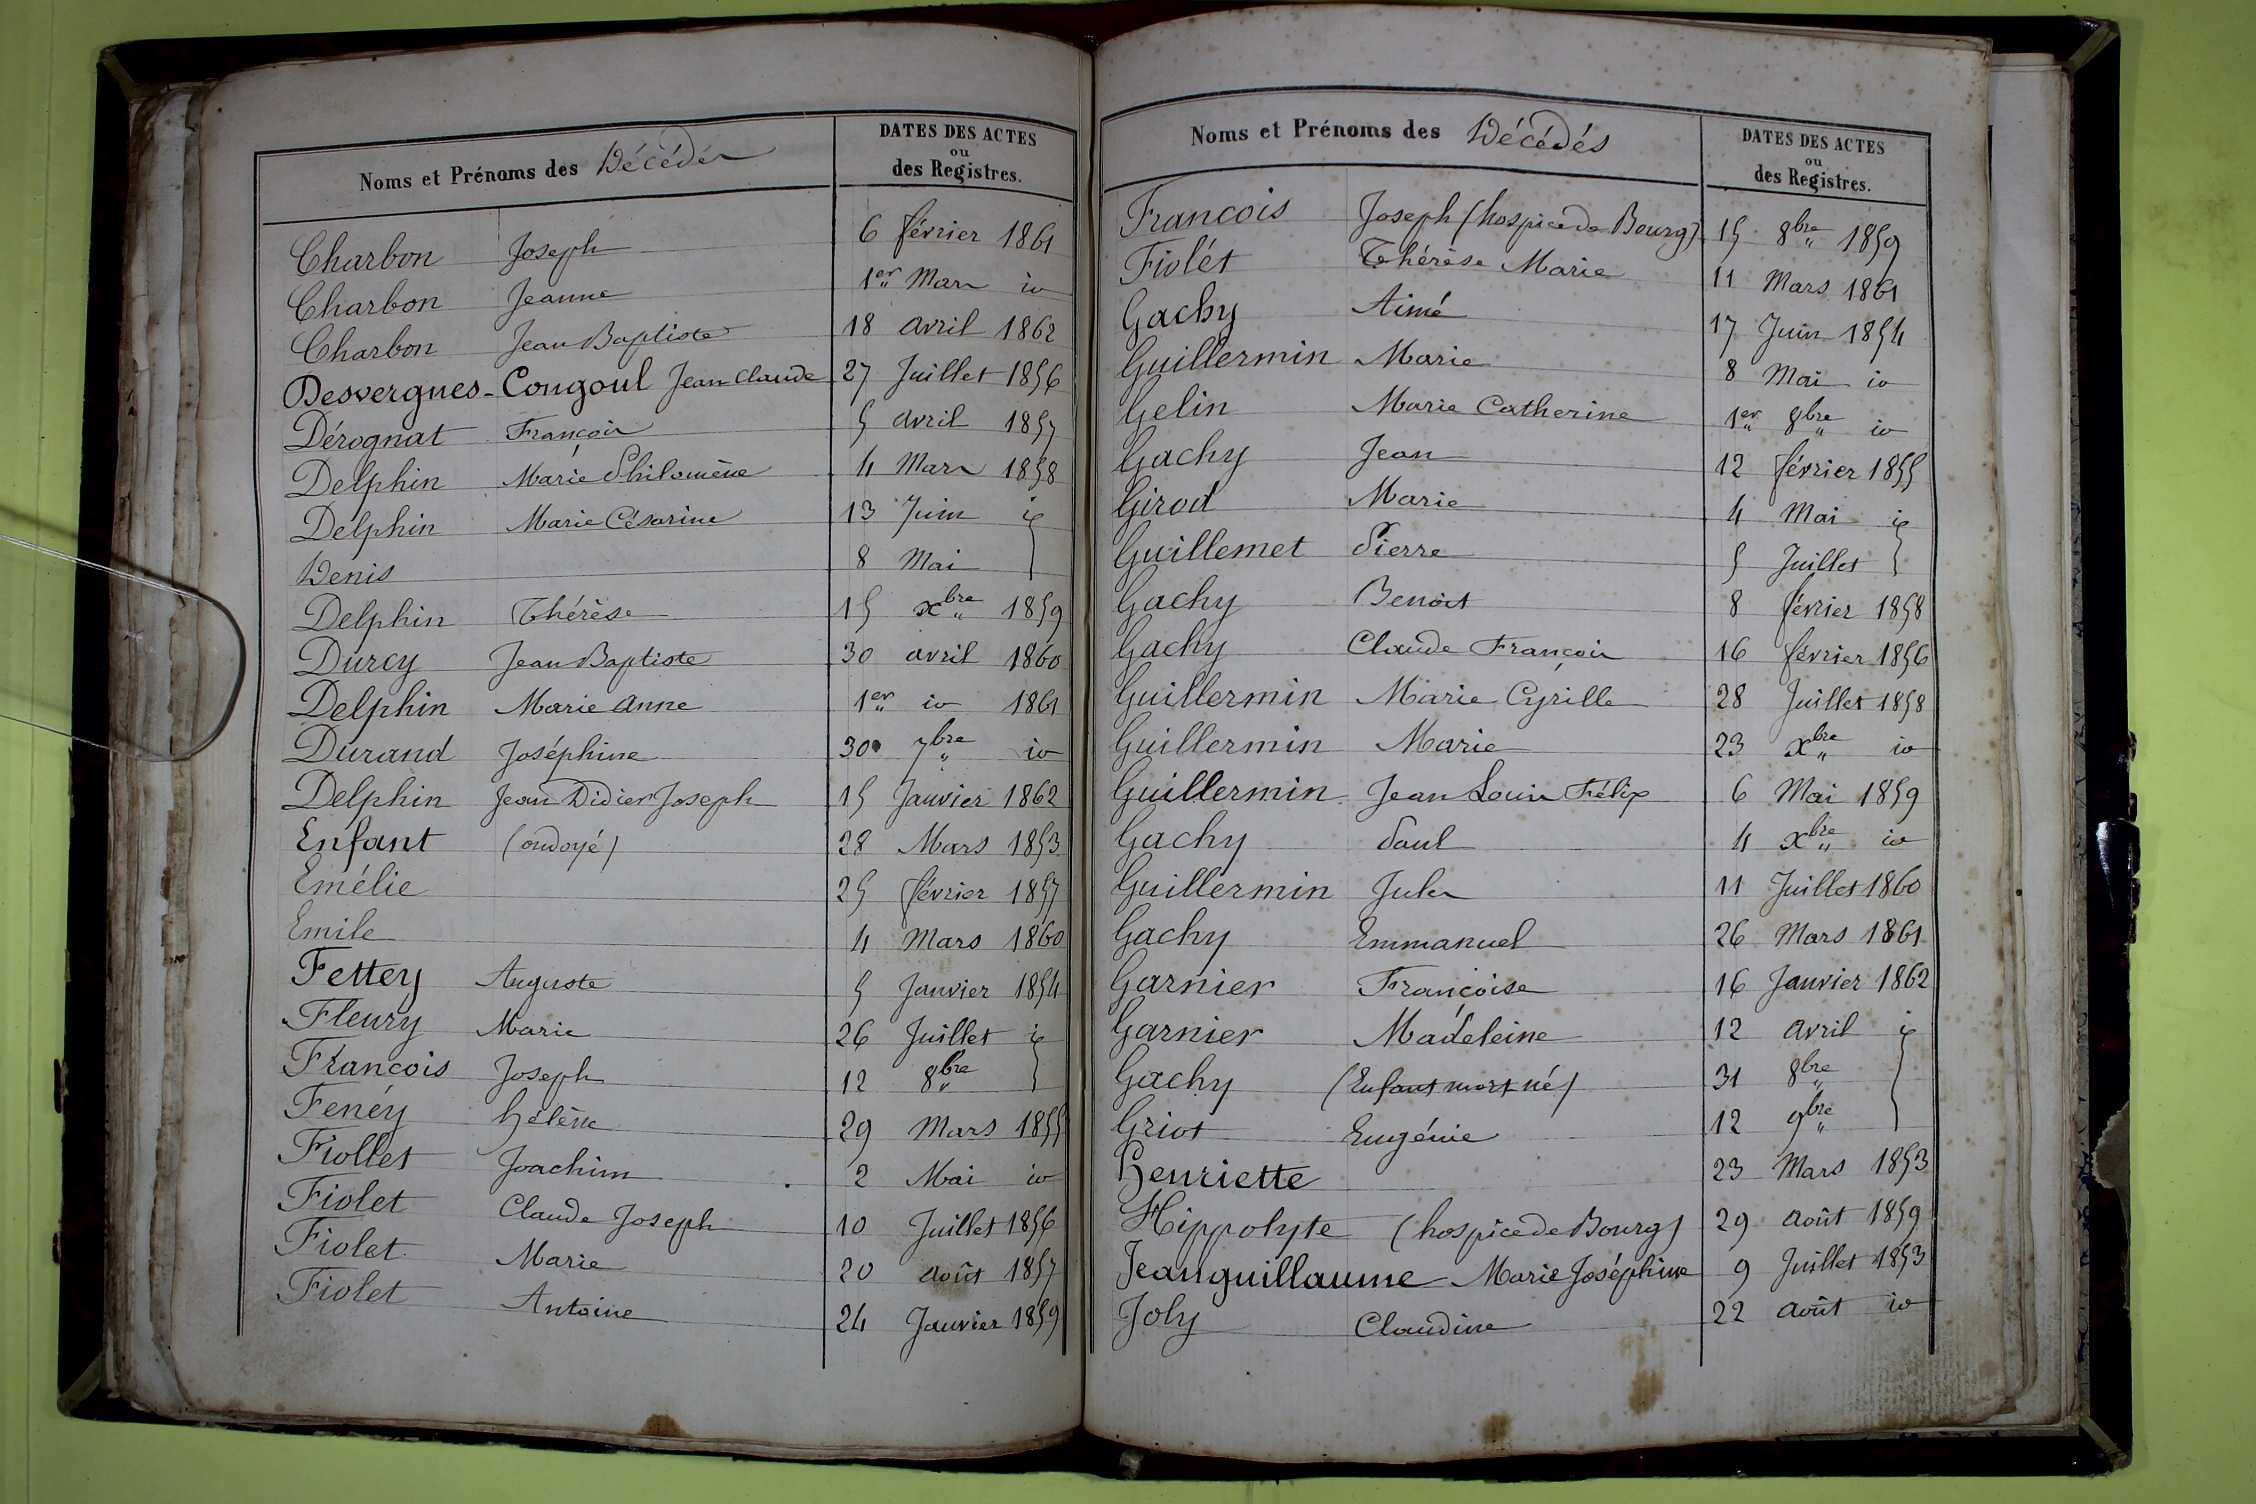 Noms et Prénoms des Décédés
DATES DES ACTES
ou
des Registres.
Charbon Joseph 6 février 1861
Charbon Jeanne 1er Mars id
Charbon Jean Baptiste 18 avril 1862
Desvergnes-Congoul Jean Claude 27 Juillet 1856
Dérognat François 5 avril 1857
Delphin Marie Philomène 4 Mars 1858
Delphin Marie Césarine 13 Juin id
Denis 8 Mai }
Delphin Thérèse 15 xbre 1859
Durcy Jean Baptiste 30 avril 1860
Delphin Marie Anne 1er id 1861
Durand Joséphine 30 7bre id
Delphin Jean Didier Joseph 15 Janvier 1862
Enfant (ondoyé) 28 Mars 1853
Emélie 25 février 1857
Emile 4 Mars 1860
Fettey Auguste 5 Janvier 1854
Fleury Marie 26 Juillet id
François Joseph 12 8bre }
Fenéy hélène 29 Mars 1855
Fiollet Joachim 2 Mai id
Fiolet Claude Joseph 10 Juillet 1856
Fiolet Marie 20 Août 1857
Fiolet Antoine 24 Janvier 1859
Noms et Prénoms des Décédés
DATES DES ACTES
ou
des Registres.
Francois Joseph (hospice de Bourg) 15 8bre 1859
Fiolét Thérèse Marie 11 Mars 1861
Gachy Aimé 17 Juin 1854
Guillermin Marie 8 Mai id
Gelin Marie Catherine 1er 8bre id
Gachy Jean 12 février 1855
Girod Marie 4 Mai id
Guillemet Pierre 5 Juillet }
Gachy Benoit 8 février 1858
Gachy Claude François 16 février 1856
Guillermin Marie Cyrille 28 Juillet 1858
Guillermin Marie 23 xbre id
Guillermin Jean Louis Félix 6 Mai 1859
Gachy Paul 4 xbre id
Guillermin Jules 11 Juillet 1860
Gachy Emmanuel 26 Mars 1861
Garnier Françoise 16 Janvier 1862
Garnier Madeleine 12 Avril id
Gachy (Enfant mort né) 31 8bre }
Griot Eugénie 12 9bre
Henriette 23 Mars 1853
Hippolyte (hospice de Bourg) 29 Août 1859
Jeanguillaume Marie Joséphine 9 Juillet 1853
Joly Claudine 22 Août id